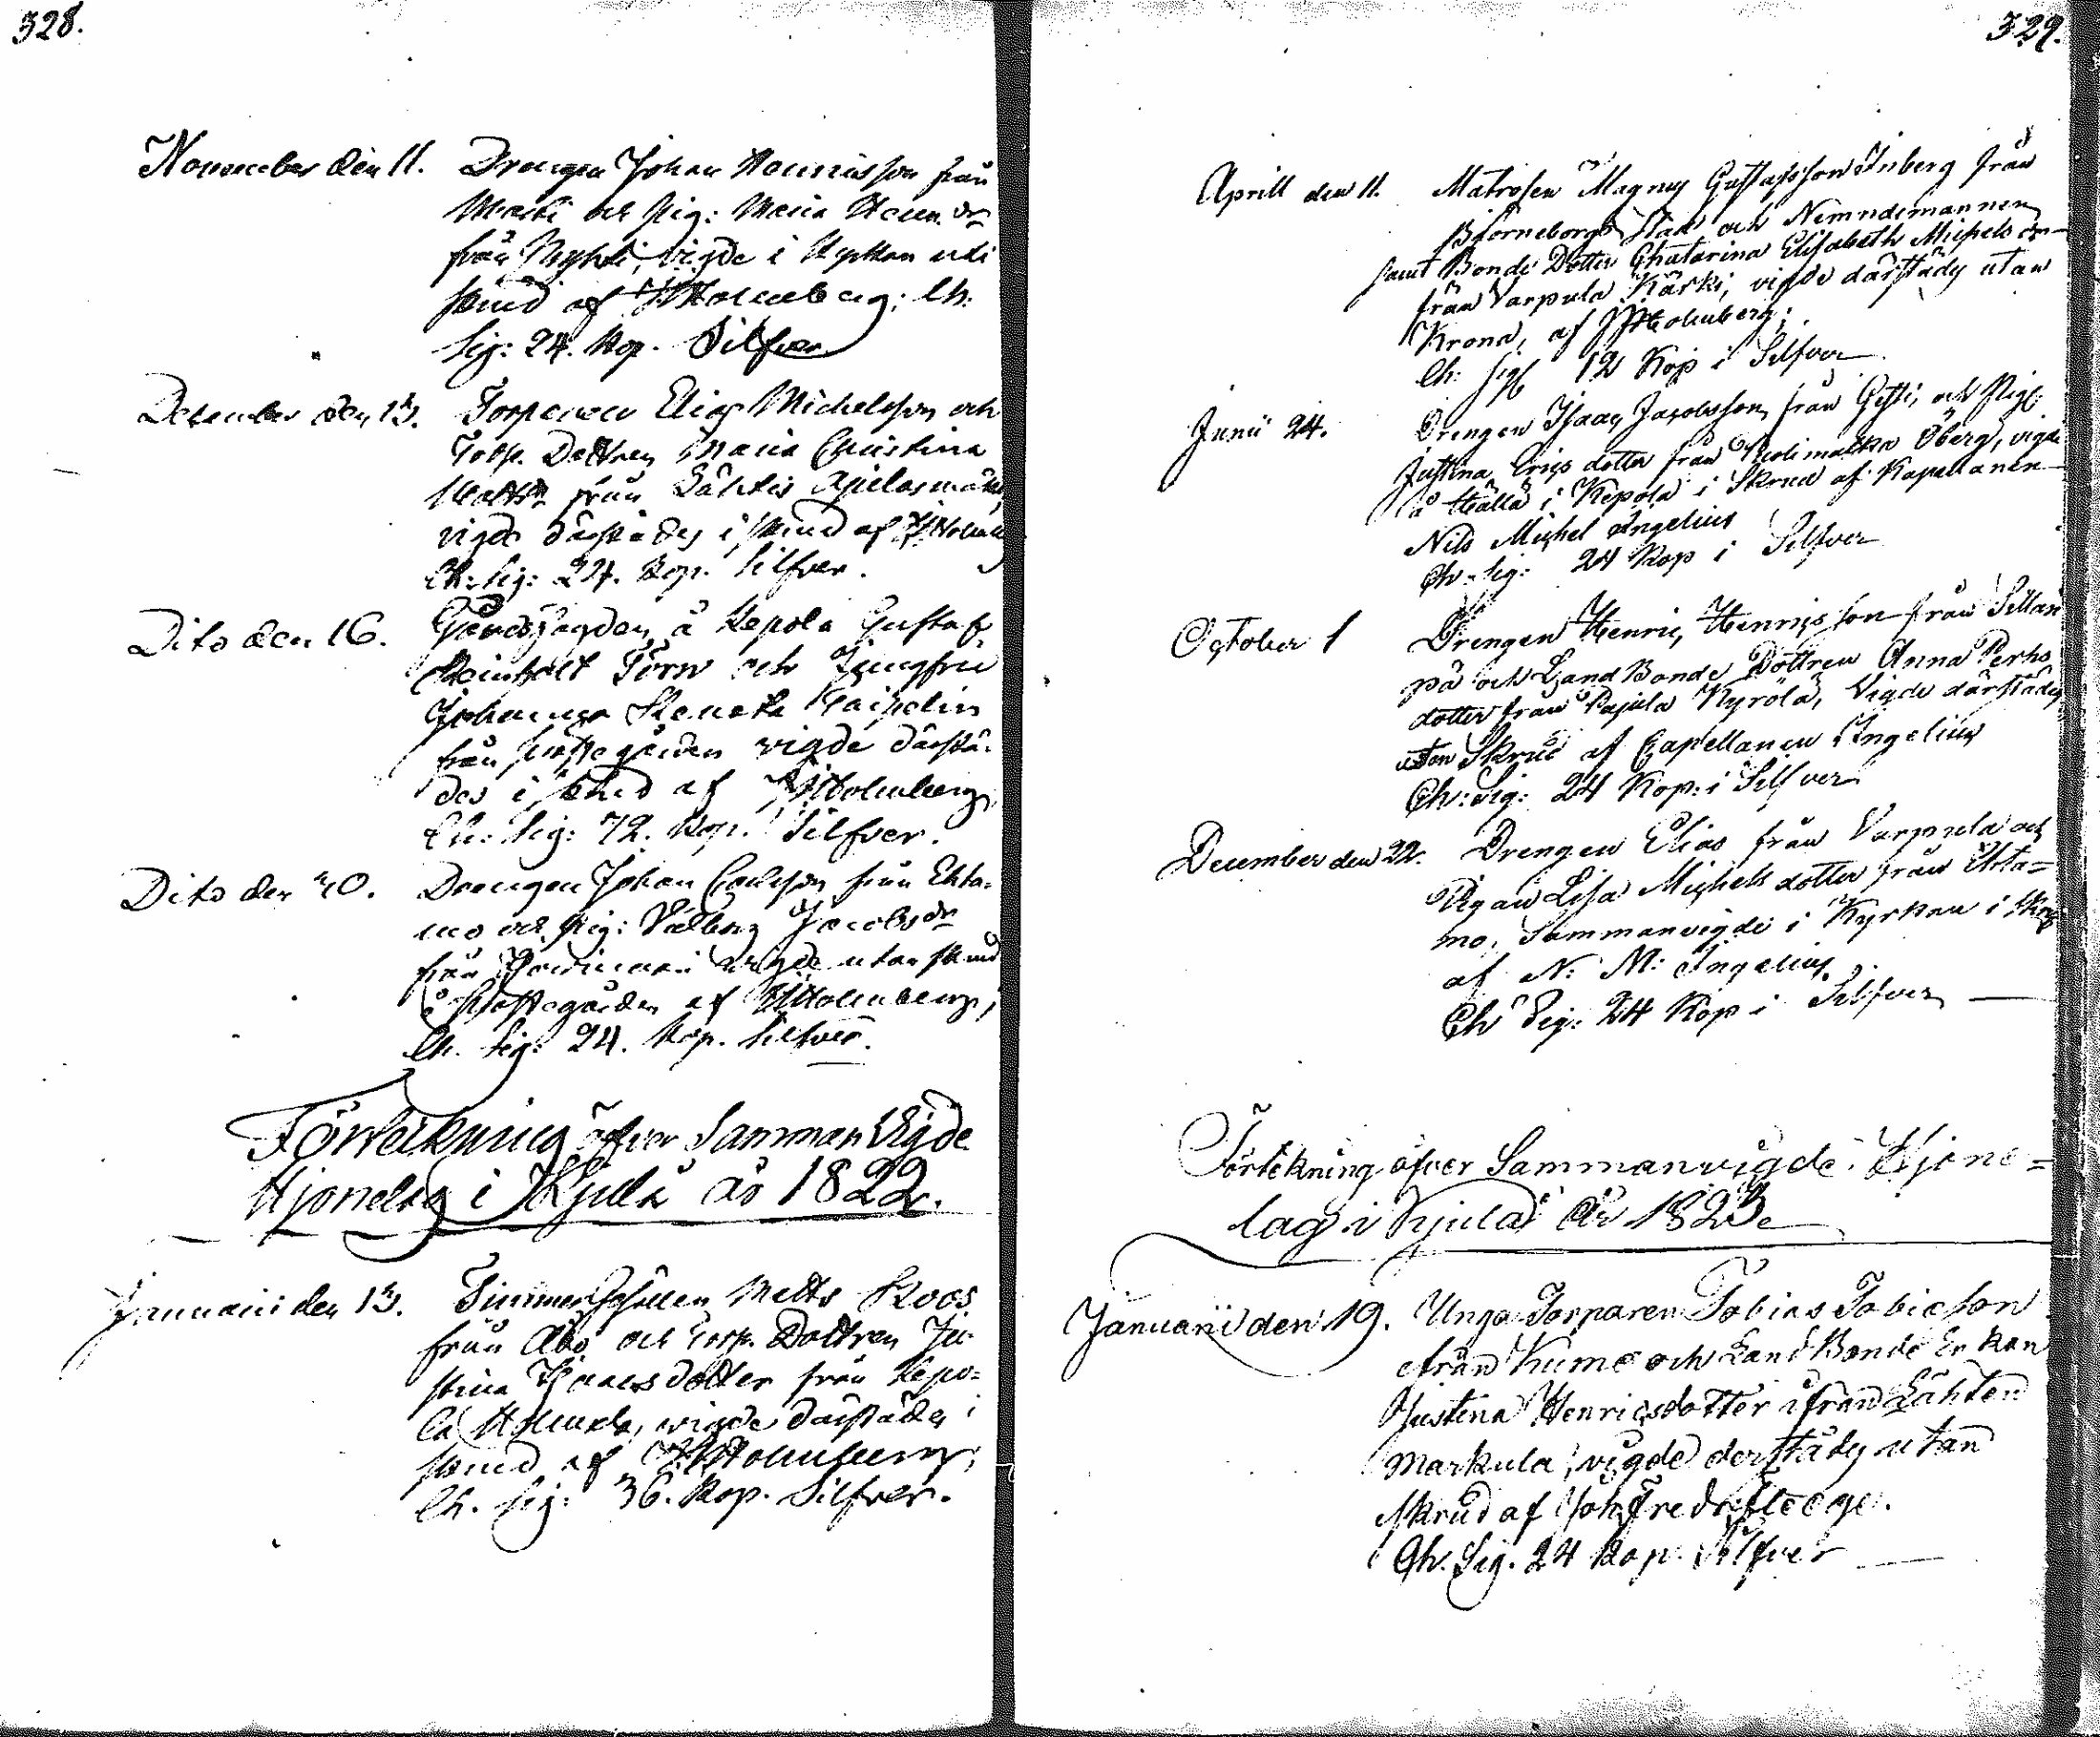 328.
November den 11. Drengen Johan Hennisson från
och Pig: Maria dr
från vigde i Kyrkan uti
skrud af Holmberg; Ch.
Sig: 24. Kop. Silfver
December den 13. Torparen Elias Michelsson och
Torp. Dottren Maria Christina
Matts dr från Lähtis
vigde därstädes i skrud af
Ch: Sig: 24. Kop. Silfver.
Dito den 16. å Kepola Gustaf
Reinholt Törn och Jungfru
Johanna Renata Caipelin
från Prestegården vigde därstä-
des i skrud af Holmberg
Ch: Sig: 72. Kop. Silfver.
Dito den 30. Drengen Johan Carlsson från Ehta-
mo och Pig: Valborg Jacobs dr
från vigde utan skrud
å Prestegården af Holmberg,
Ch. Sig: 24. Kop. Silfver.
Förteckning öfver Samman Vigde
Hjonelag i Kjula år 1822.
Januarii den 13. Timmer Gesällen Matts Roos
från Åbo och Torp. Dottren Ju-
stina Isaacs dotter från Kepo-
la vigde därstädes i
skrud af Holmberg;
Ch. Sig: 36. Kop. Silfver.
329.
Aprill den 11. Matrosen Magnus Gustafsson Enberg från
Björneborgs Stad och Nemndemannen
samt Bonde Dotter Chatarina Elisabeth Michels dr
från Varpula Kärki, vigde därstädes utan
Krona, af Holmberg;
Ch: Sig 12 Kop i Silfver
Junii 24. Drengen Isaac Jacobsson från och Pig:
Justina Erics dotter från Öberg, vigde
å Hälla i Kepola i Skrud af Kapellanen
Nils Michel Ingelius
Ch: Sig: 24 Kop i Silfver
October 1 Drengen Henric Henricsson från Sillan
pä och Land Bonde Dottren Anna Pehrs
dotter från Pajula Kyrölä, Vigde därstädes
utan Skrud af Capellanen Ingelius
Ch: Sig: 24 Kop: i Silfver
December den 22. Drengen Elias från Varpula och
Pigan Lisa Michels dotter från Ehta=
mo, Sammanvigde i Kyrkan i Skrud
af N: M: Ingelius.
Ch Sig: 24 Kop i Silfver
Förtekning öfver Sammanvigde Hjone=
lag i Kjula År 1823
Januarii den 19. Unga Torparen Tobias Tobieson
ifrån Kumo och Land Bonde Enkan
Justina Henricsdotter ifrån Lähten
Markula, vigde derstädes utan
Skrud af Joh: Fredr:
Ch. Sig. 24 Kop. Silfver